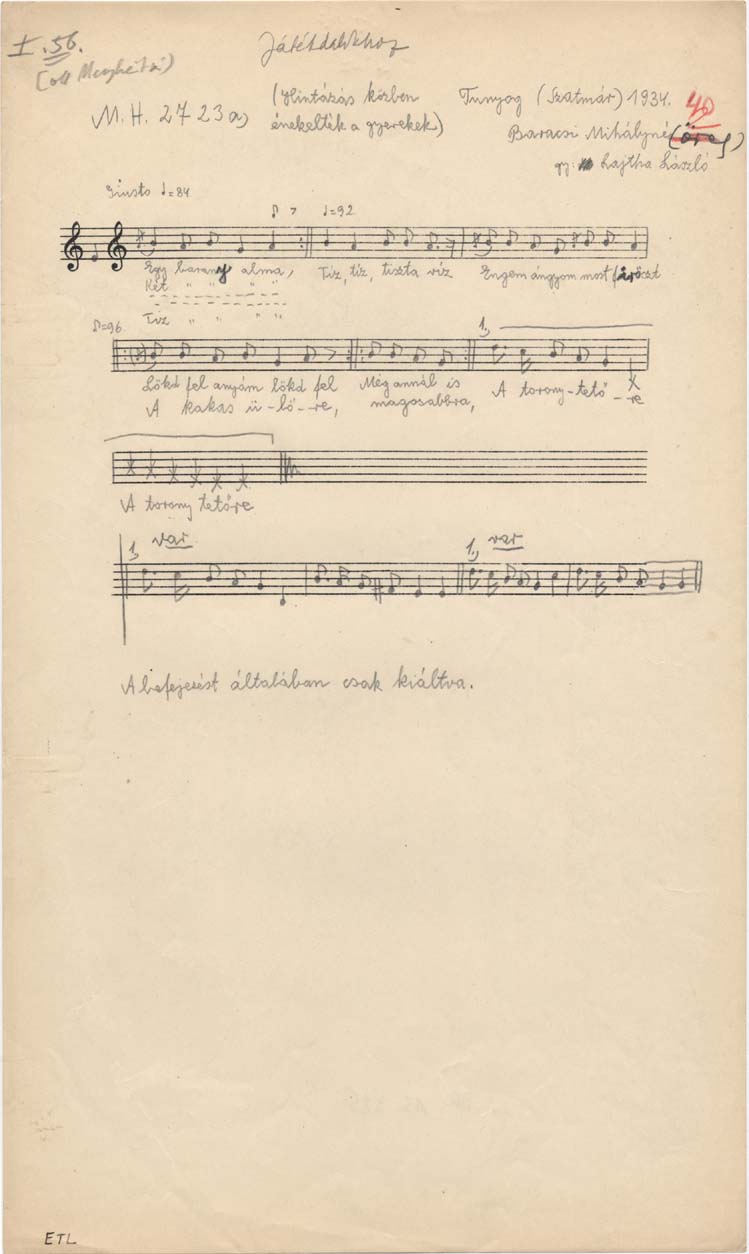 I. 56.
Játékdalokhoz
M. H. 2723a)
(Hintázás közben
énekelték a gyerekek)
Tunyog (Szatmár) 1934.
40
Baracsi Mihályné (öreg)
gy: Lajtha László
Giusto ♩=84
♩=92
Egy barany alma, Tiz, tiz, tiszta víz Engem ángyom most füröszt
Két " " " "
Tiz " " " "
♪=96
1,
Lökd fel anyám lökd fel Még annál is A torony-tető--re
A kakas ü-lő--re, magosabbra,
A torony tetőre
1, var
1, var
A befejezést általában csak kiáltva.
ETL